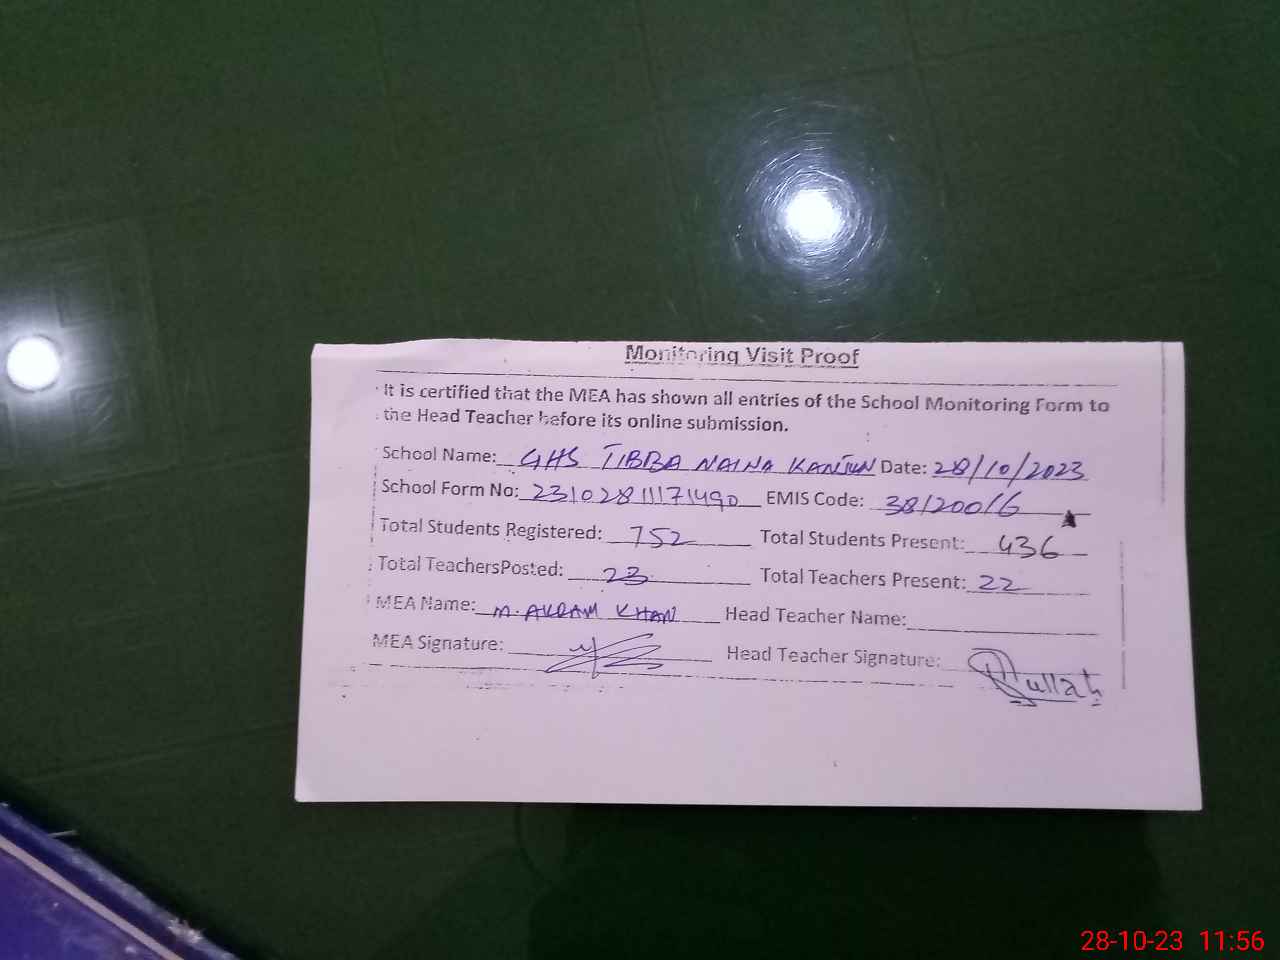 Monitoring Visit Proof
It is certified that the MEA has shown all entries of the School Monitoring Form to
the Head Teacher before its online submission.
School Name: GHS TIBBA NAINA KANJUN Date: 28/10/2023
School Form No: 23102811171490 EMIS Code: 38120016
Total Students Registered: 752 Total Students Present: 436
Total TeachersPosted: 23 Total Teachers Present: 22
MEA Name: M. AKRAM KHAN Head Teacher Name:
MEA Signature: Head Teacher Signature:
28-10-23 11:56